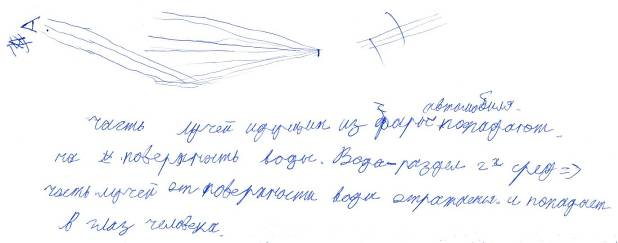 А
автомобиля.
часть лучей идущих из фары попадают
на поверхность воды. Вода-раздел 2х сред =>
часть лучей от поверхности воды отражены и попадает
в глаз человека.